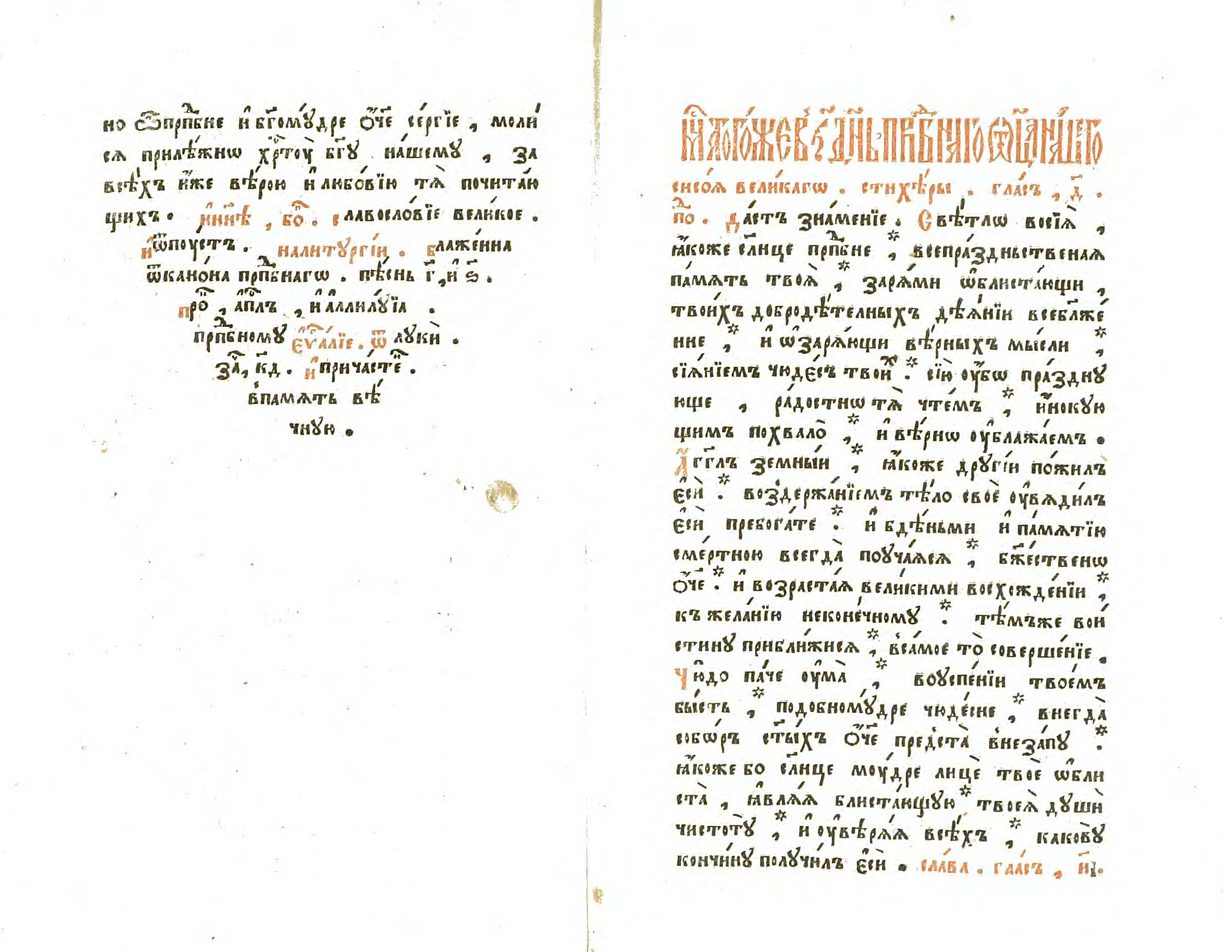 но ѽ прпⷣбне и҆ бг҃омꙋ́дре ѻ҆́ч҃е се́ргїе , моли́
сѧ прилѣ́жнѡ хрⷭ҇тоу̀ бг҃ꙋ нашемꙋ , за
всѣ́хъ и҆́же вѣ́рою и҆ любо́вїю тѧ̀ почита́ю
щихъ . и҆ нн҃ѣ , боⷢ҇ . славосло́вїе вели́кое .
и҆ ѿпоустъ . на литꙋргі́и . блаже́нна
ѿ кано́на прпⷣбнагѡ . пѣ́снь г҃ , и҆ ѕ҃ .
проⷦ҇ , а҆пⷭ҇лъ , и҆ аллилꙋ́їа .
прпⷣбномꙋ є҆ѵⷢ҇алїе . ѿ лꙋки̇̀ .
заⷱ҇ , к҃д . и҆ прича́стеⷩ҇ .
в̾ па́мѧть вѣ́
чнꙋю .
мⷭ҇ца того́же в҃ і҃ дн҃ь , прпⷣбнаго ѻ҆ц҃а на́шего
сисо́ѧ вели́кагѡ . стихѣ́ры . гла́съ , д҃ .
поⷣ . да́стъ зна́менїе . Свѣ́тлѡ восїѧ̀ ,
ꙗ҆́коже сл҃нце прпⷣбне , * всепра́здньственаѧ
па́мѧть твоѧ̀ * зарѧ́ми ѡ҆блиста́ющи ,
твои́хъ добродѣ́телныхъ дѣѧ́нїи всебл҃же́
нне , * и҆ ѡ҆зарѧ́ющи вѣ́рныхъ мы́сли , *
сїѧ́нїемъ чюде́съ твоиⷯ . * сїю̀ оу҆́бѡ пра́зднꙋ
юще , ра́достнѡ тѧ̀ чте́мъ , * и҆́нокꙋ
щимъ похвало̀ , * и҆ вѣ́рнѡ оу҆блажа́емъ .
А҆́гг҃лъ земны́и , * ꙗ҆́коже дрꙋгі́и по́жилъ
є҆сѝ . * воздержа́нїемъ тѣ́ло своѐ оу҆вѧди́лъ
є҆сѝ пребога́те . * и҆ бдѣ́ньми и҆ па́мѧтїю
сме́ртною всегда̀ поꙋча́ѧсѧ , * бж҃е́ственѡ
ѻ҆́ч҃е . * и҆ возраста́ѧ вели́кими восхожде́нїи , *
къ жела́нїю неконе́чномꙋ . * тѣ́мъже вои́
стинꙋ прибли́жисѧ , * в̾ са́мое то̀ соверше́нїе .
Чю́до па́че оу҆ма̀ , * во оуспе́нїи твое́мъ
бы́сть , * подобномꙋ́дре чюде́сне , * внегда̀
собѡ́ръ ст҃ы́хъ ѻ҆́ч҃е предста̀ в̾неза́пꙋ . *
ꙗ҆́коже бо сл҃нце моу́дре лицѐ твоѐ ѡ҆бли
ста̀ , ꙗ҆влѧ́ѧ блиста́ющꙋю * твоеѧ̀ дꙋшѝ
чистотꙋ̀ , * и҆ оу҆вѣрѧ́ѧ всѣ́хъ , * каковꙋ̀
кончи́нꙋ полꙋчи́лъ є҆сѝ . сла́ва . гла́съ , и҃ .